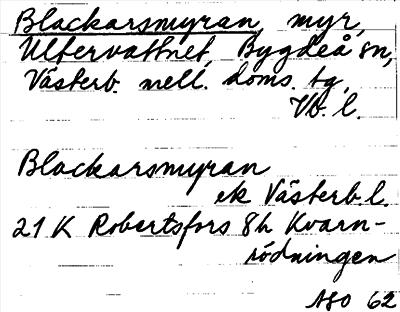 Blackarsmyran, myr,
Ultervattnet, Bygdeå sn,
Västerb. mell. doms. tg,
Vb. l.
Blackarsmyran
ek Västerb. l.
21 K Robertsfors 8h Kvarn-
rödningen
ASO 62